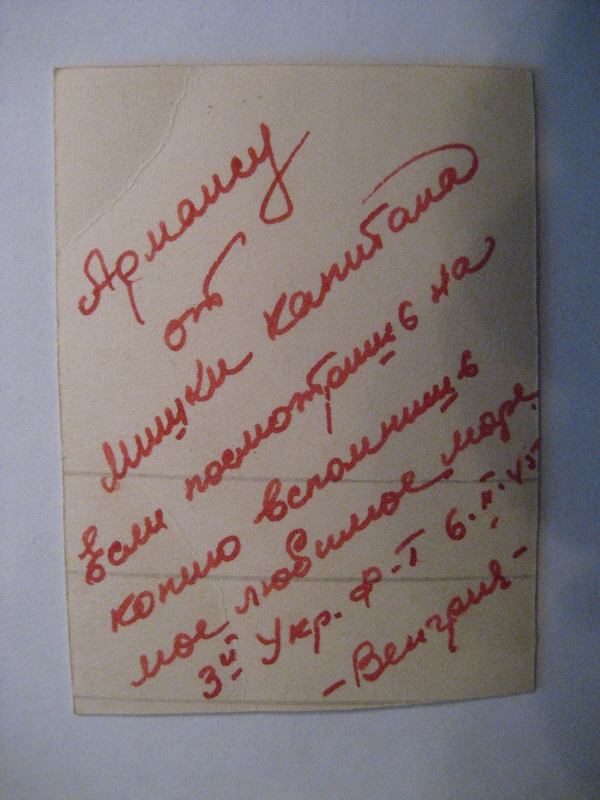 Армансу
от
Мишки капитана
Если посмотришь на
копию вспомнишь
мое любимое море.
3й Укр. Ф-Т 6.II.45
- Венгрия -